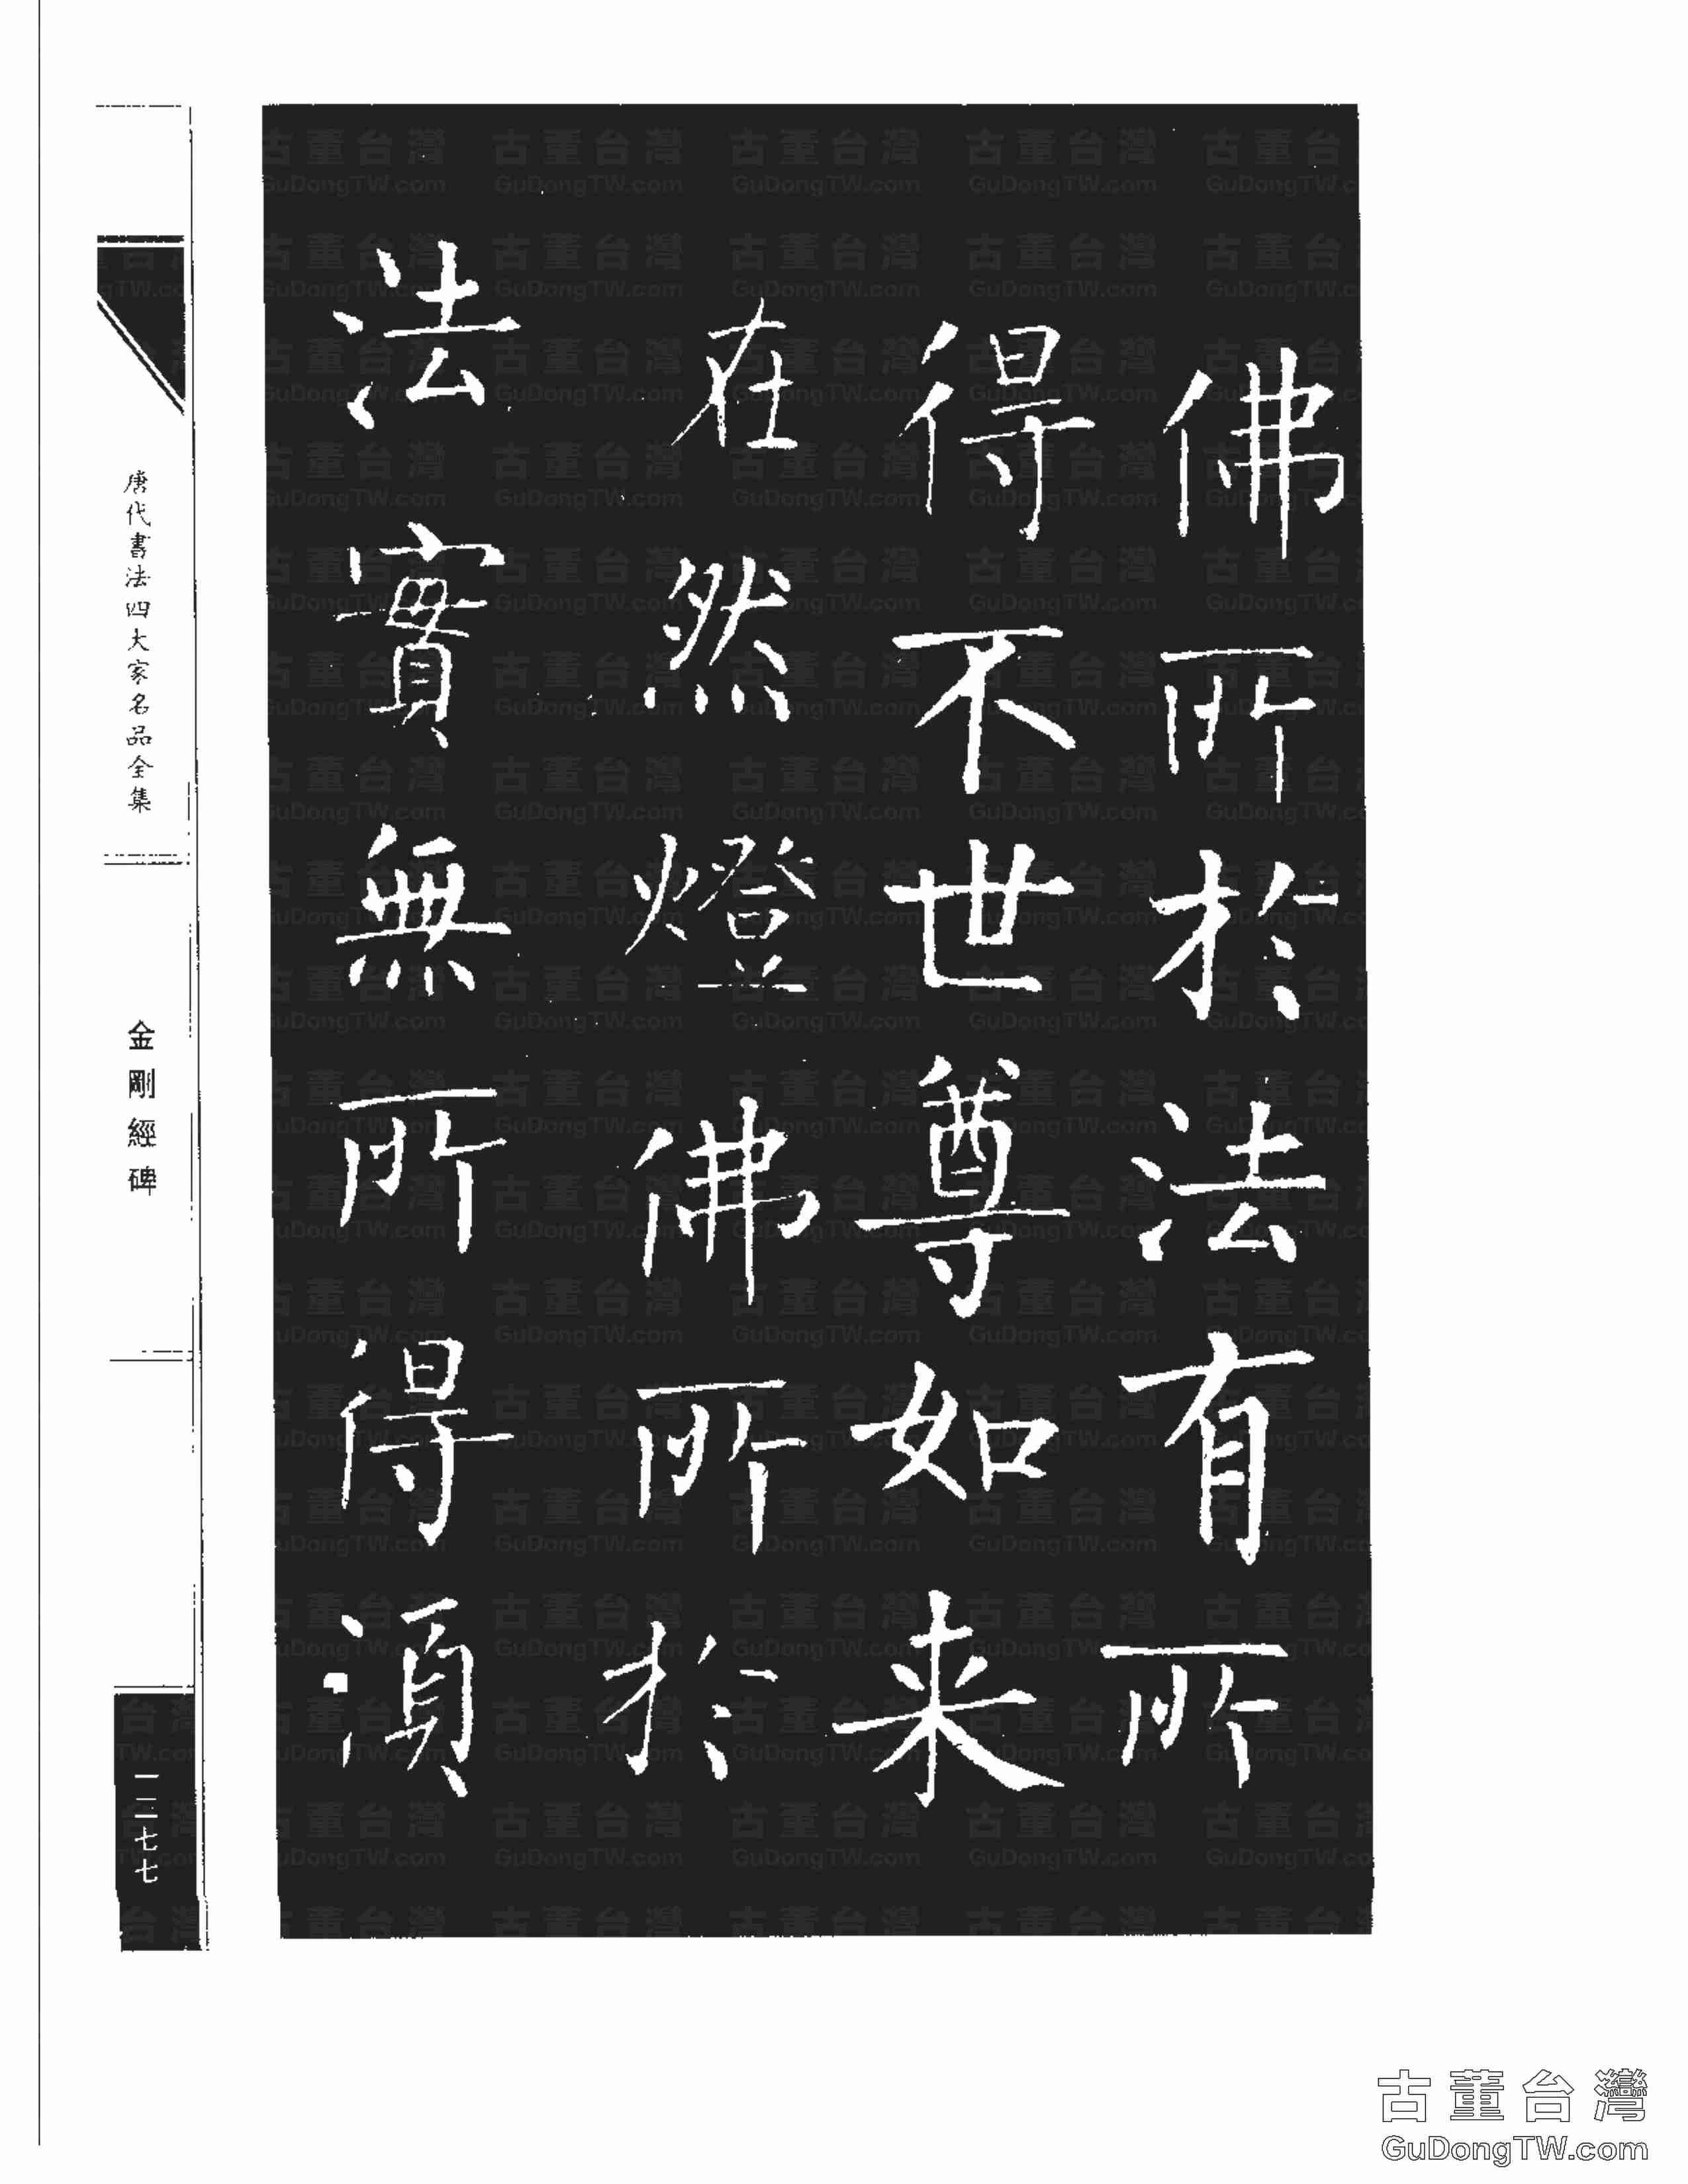 佛所於法有所
得不世尊如来
在然燈佛所於
法實無所得湏
唐代書法四大家名品全集
金剛經碑
一二七七
古董台灣
GuDongTW.com